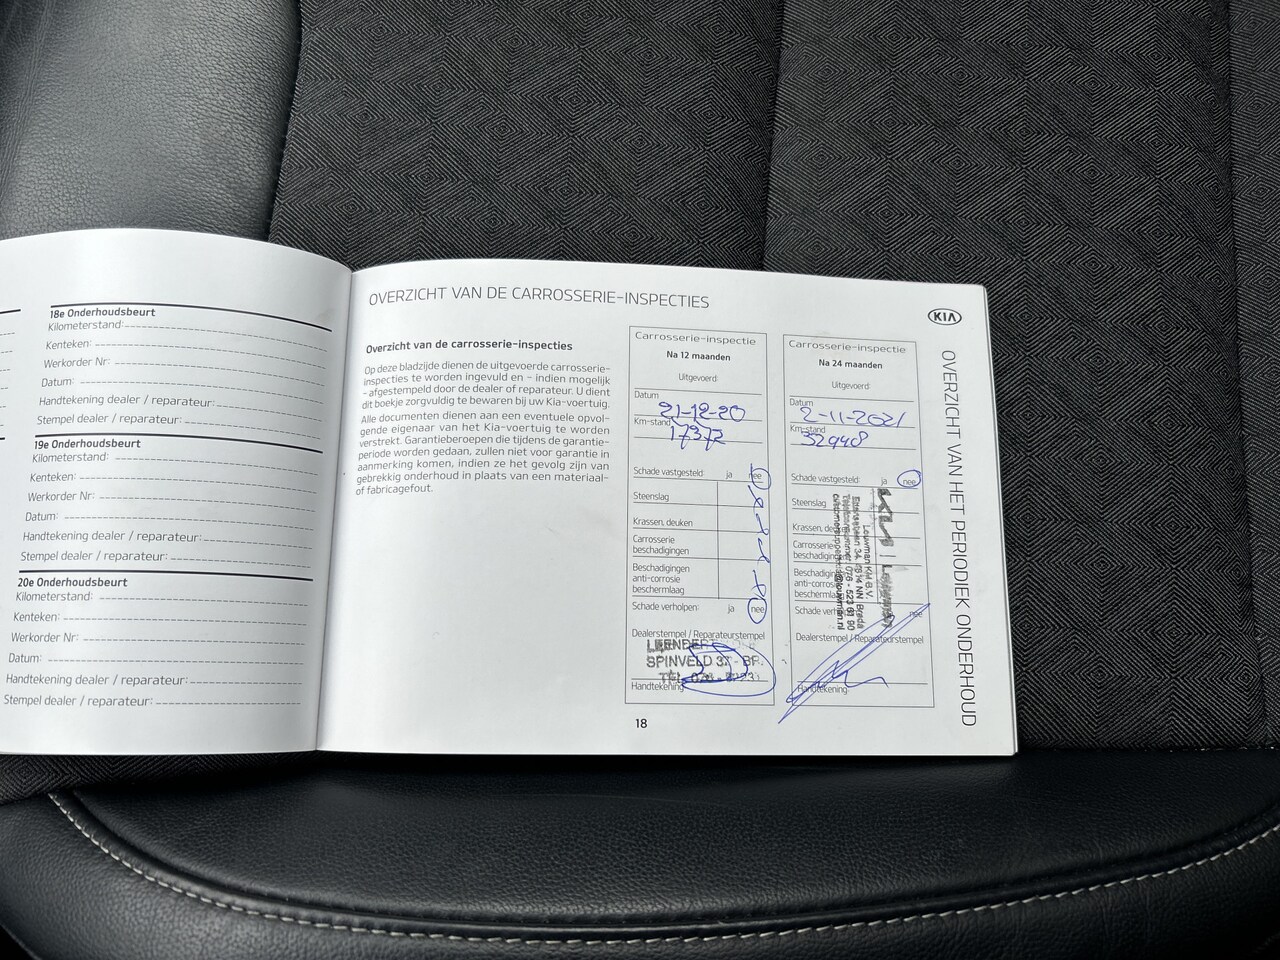 18e Onderhoudsbeurt
Kilometerstand:
Kenteken:
Werkorder Nr:
Datum:
Handtekening dealer / reparateur:
Stempel dealer / reparateur:
19e Onderhoudsbeurt
Kilometerstand:
Kenteken:
Werkorder Nr:
Datum:
Handtekening dealer / reparateur:
Stempel dealer / reparateur:
20e Onderhoudsbeurt
Kilometerstand:
Kenteken:
Werkorder Nr:
Datum:
Handtekening dealer / reparateur:
Stempel dealer / reparateur:
OVERZICHT VAN DE CARROSSERIE-INSPECTIES
Overzicht van de carrosserie-inspecties
Op deze bladzijde dienen de uitgevoerde carrosserie-
inspecties te worden ingevuld en - indien mogelijk
- afgestempeld door de dealer of reparateur. U dient
dit boekje zorgvuldig te bewaren bij uw Kia-voertuig.
Alle documenten dienen aan een eventuele opvol-
gende eigenaar van het Kia-voertuig te worden
verstrekt. Garantieberoepen die tijdens de garantie-
periode worden gedaan, zullen niet voor garantie in
aanmerking komen, indien ze het gevolg zijn van
gebrekkig onderhoud in plaats van een materiaal-
of fabricagefout.
Carrosserie-inspectie
Na 12 maanden
Uitgevoerd:
Datum
21-12-20
Km-stand
17372
Schade vastgesteld: ja nee
Steenslag
Krassen, deuken
Carrosserie
beschadigingen
Beschadigingen
anti-corrosie
beschermlaag
Schade verholpen: ja nee
Dealerstempel / Reparateurstempel
SPINVELD
TEL.
Handtekening
18
Carrosserie-inspectie
Na 24 maanden
Uitgevoerd:
Datum
2-11-2021
Km-stand
Schade vastgesteld: ja nee
Steenslag
Krassen,
Carrosserie
Dealerstempel / Reparateurstempel
Handtekening
KIA | Louwman
Louwman KIA B.V.
34, 4814 NN Breda
076 - 523 61 90
KIA
OVERZICHT VAN HET PERIODIEK ONDERHOUD